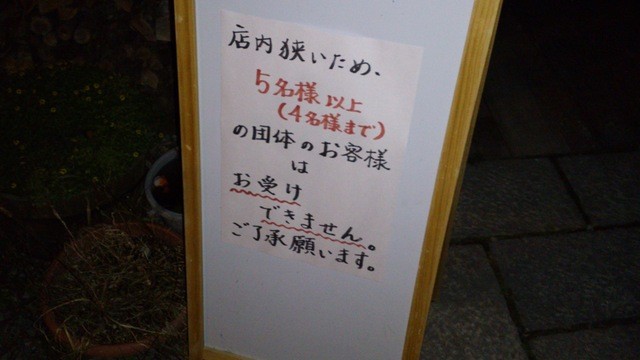 店内狭いため、
5名様以上
(4名様まで)
の団体のお客様
は
お受け
できません。
ご了承願います。